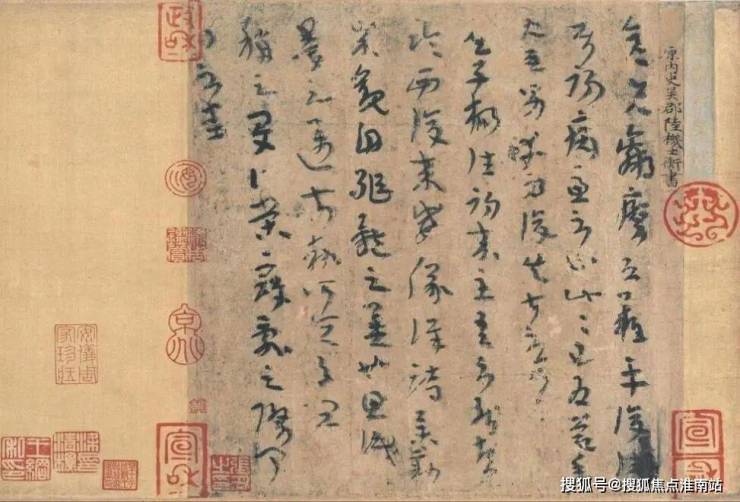 原内史吳郡陸機士衡書
彦先羸瘵恐難平復往屬
初病慮不止此此已為慶承
使唯男幸為復失前憂耳
子楊往初來主吾不能盡
臨西復來威儀詳跱舉動
成觀自軀體之美也思識
量之邁前執所恒有宜
稱之夏伯榮寇亂之際聞
問不悉
政龢
宣龢
宣龢
搜狐号@搜狐焦点淮南站